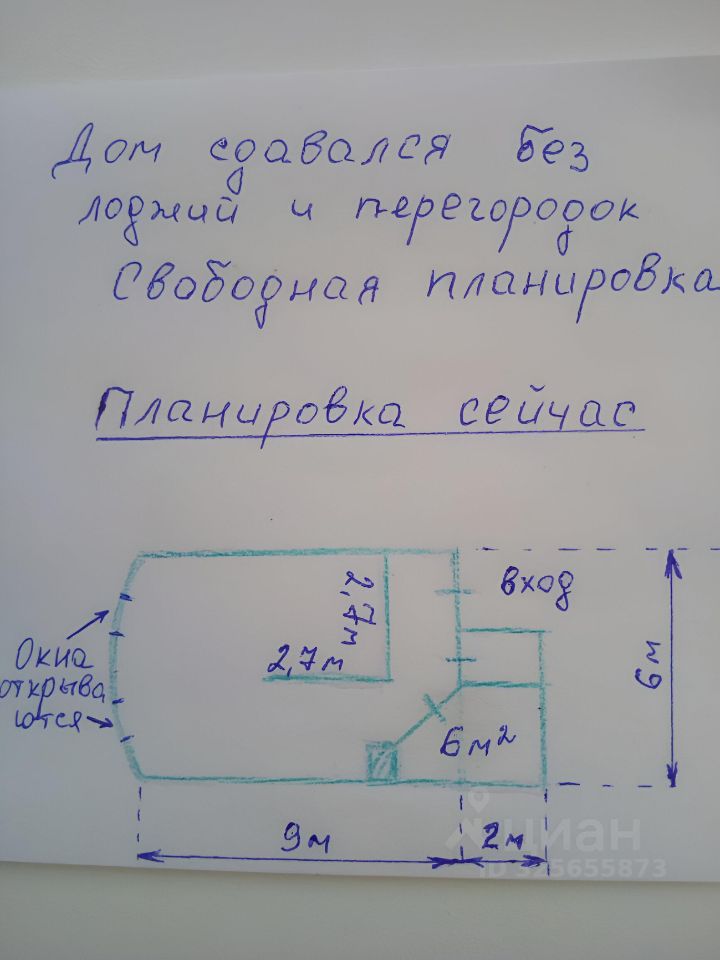 Дом сдавался без
лоджий и перегородок
Свободная планировка
Планировка сейчас
вход
2,7м
2,7м
Окна
открыва
ются
6м
6м²
9м
2м
циан
ID 325655873